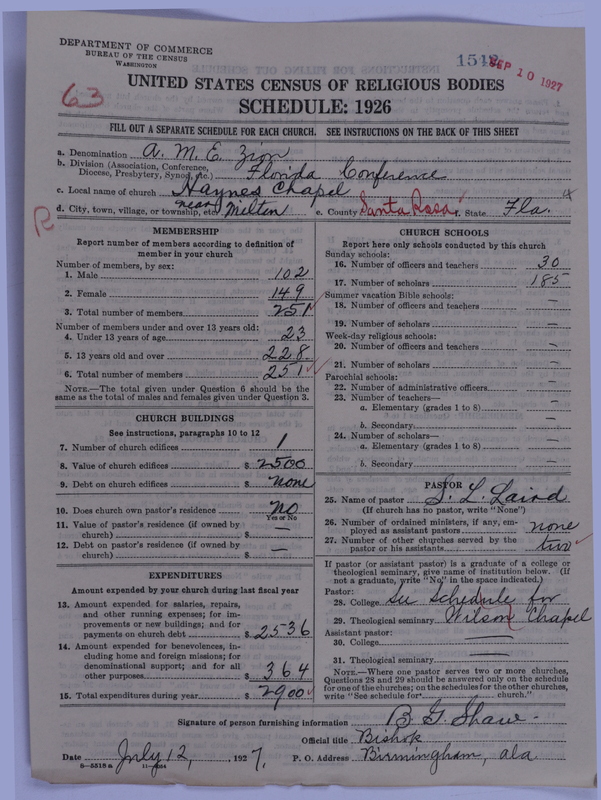 DEPARTMENT OF COMMERCE
BUREAU OF THE CENSUS
WASHINGTON
SEP 10 1927
63
UNITED STATES CENSUS OF RELIGIOUS BODIES
SCHEDULE: 1926
FILL OUT A SEPARATE SCHEDULE FOR EACH CHURCH. SEE INSTRUCTIONS ON THE BACK OF THIS SHEET
a. Denomination A. M. E. Zion
b. Division (Association, Conference, Diocese, Presbytery, Synod, etc.) Florida Conference
c. Local name of church Haynes Chapel
d. City, town, village, or township, etc. near Milton e. County Santa Rosa f. State Fla.
R
MEMBERSHIP
Report number of members according to definition of
member in your church
Number of members, by sex:
1. Male 102
2. Female 149
3. Total number of members 251
Number of members under and over 13 years old:
4. Under 13 years of age 23
5. 13 years old and over 228
6. Total number of members 251
NOTE.—The total given under Question 6 should be the
same as the total of males and females given under Question 3.
CHURCH BUILDINGS
See instructions, paragraphs 10 to 12
7. Number of church edifices 1
8. Value of church edifices $ 2500
9. Debt on church edifices $ none
10. Does church own pastor's residence? no
Yes or No
11. Value of pastor's residence (if owned by
church) $ —
12. Debt on pastor's residence (if owned by
church) $ —
EXPENDITURES
Amount expended by your church during last fiscal year
13. Amount expended for salaries, repairs,
and other running expenses; for im-
provements or new buildings; and for
payments on church debt $ 2536
14. Amount expended for benevolences, in-
cluding home and foreign missions; for
denominational support; and for all
other purposes $ 364
15. Total expenditures during year $ 2900
CHURCH SCHOOLS
Report here only schools conducted by this church
Sunday schools:
16. Number of officers and teachers 30
17. Number of scholars 185
Summer vacation Bible schools:
18. Number of officers and teachers —
19. Number of scholars —
Week-day religious schools:
20. Number of officers and teachers —
21. Number of scholars —
Parochial schools:
22. Number of administrative officers —
23. Number of teachers—
a. Elementary (grades 1 to 8) —
b. Secondary —
24. Number of scholars—
a. Elementary (grades 1 to 8) —
b. Secondary —
PASTOR
25. Name of pastor S. L. Laird
(If church has no pastor, write "None")
26. Number of ordained ministers, if any, em-
ployed as assistant pastors none
27. Number of other churches served by the
pastor or his assistants two
If pastor (or assistant pastor) is a graduate of a college or
theological seminary, give name of institution below. (If
not a graduate, write "No" in the space indicated.)
Pastor:
28. College See Schedule for
29. Theological seminary Wilson Chapel
Assistant pastor:
30. College —
31. Theological seminary —
NOTE.—Where one pastor serves two or more churches,
Questions 28 and 29 should be answered only on the schedule
for one of the churches; on the schedules for the other churches,
write "See schedule for church."
Signature of person furnishing information B. G. Shaw
Official title Bishop
Date July 12, 1927, P. O. Address Birmingham, Ala